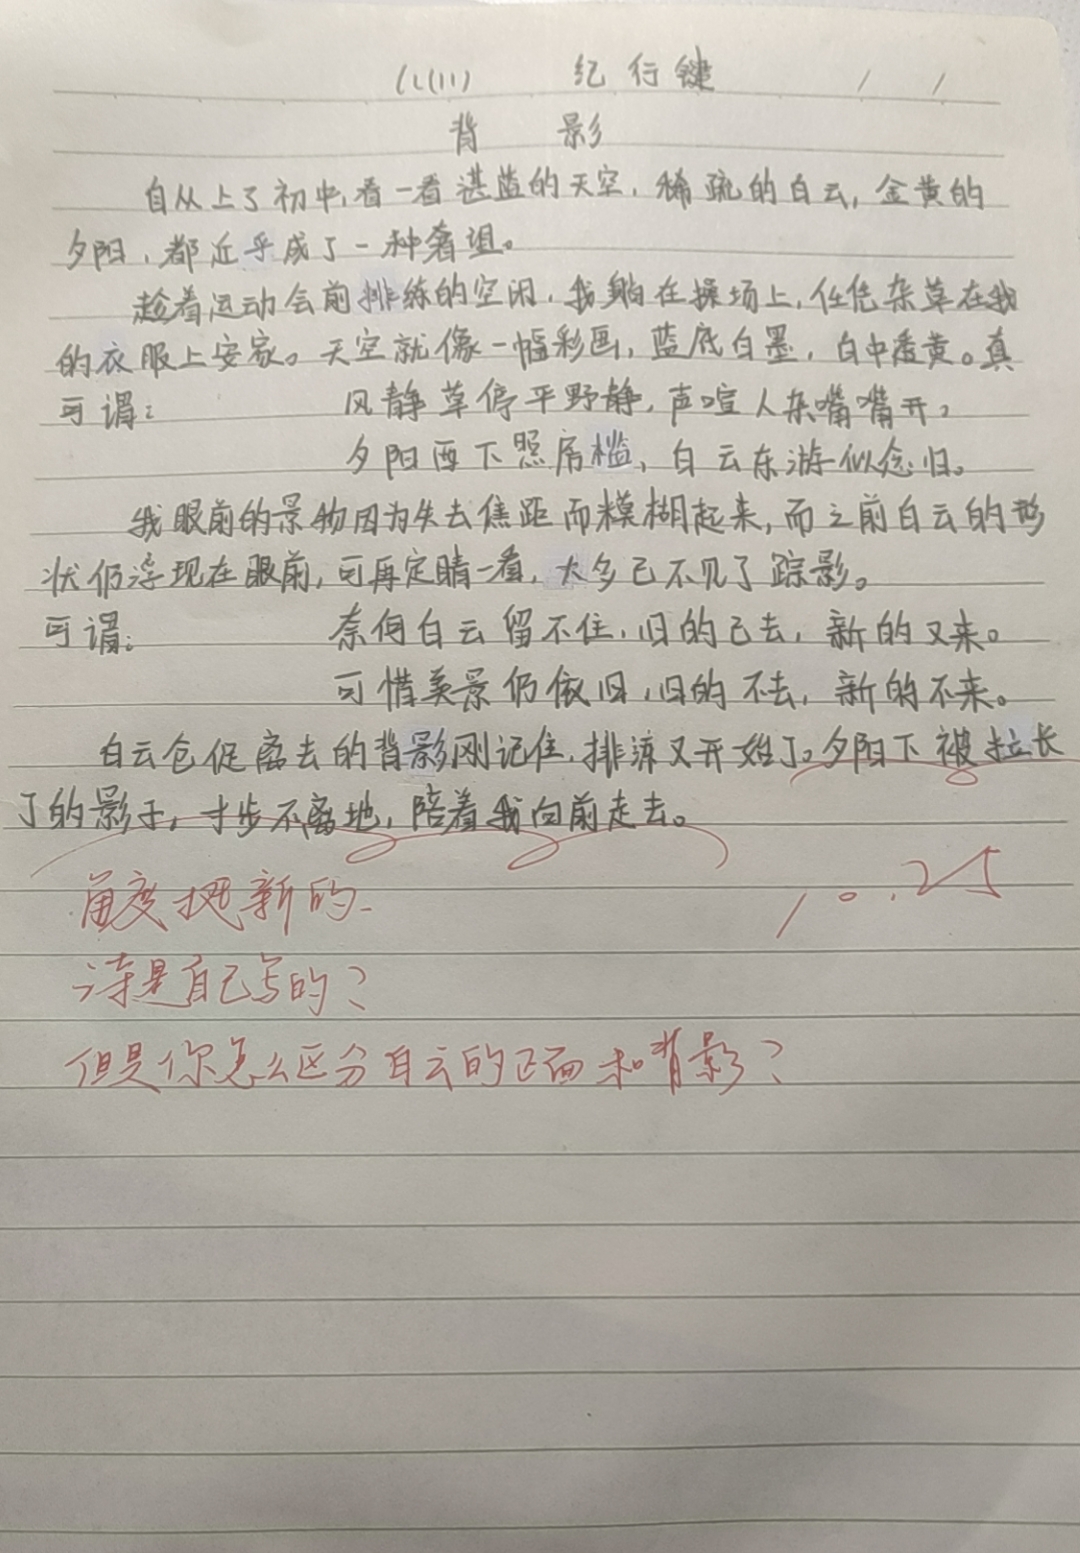 纪行键
背 影
自从上了初中,看一看湛蓝的天空,稀疏的白云,金黄的
夕阳,都近乎成了一种奢望。
趁着运动会前排练的空闲,我躺在操场上,任凭杂草在我
的衣服上安家。天空就像一幅彩画,蓝底白墨,白中透黄。真
可谓: 风静草停平野静,声喧人杂嘴嘴开,
夕阳西下照房槛,白云东游似念归。
我眼前的景物因为失去焦距而模糊起来,而之前白云的形
状仍浮现在眼前,可再定睛一看,大多已不见了踪影。
可谓: 奈何白云留不住,旧的已去,新的又来。
可惜美景仍依旧,旧的不去,新的不来。
白云仓促离去的背影刚记住,排演又开始了。夕阳下被拉长
了的影子,寸步不离地,陪着我向前走去。
角度挺新的
10.25
诗是自己写的?
但是你怎么区分白云的正面和背影?